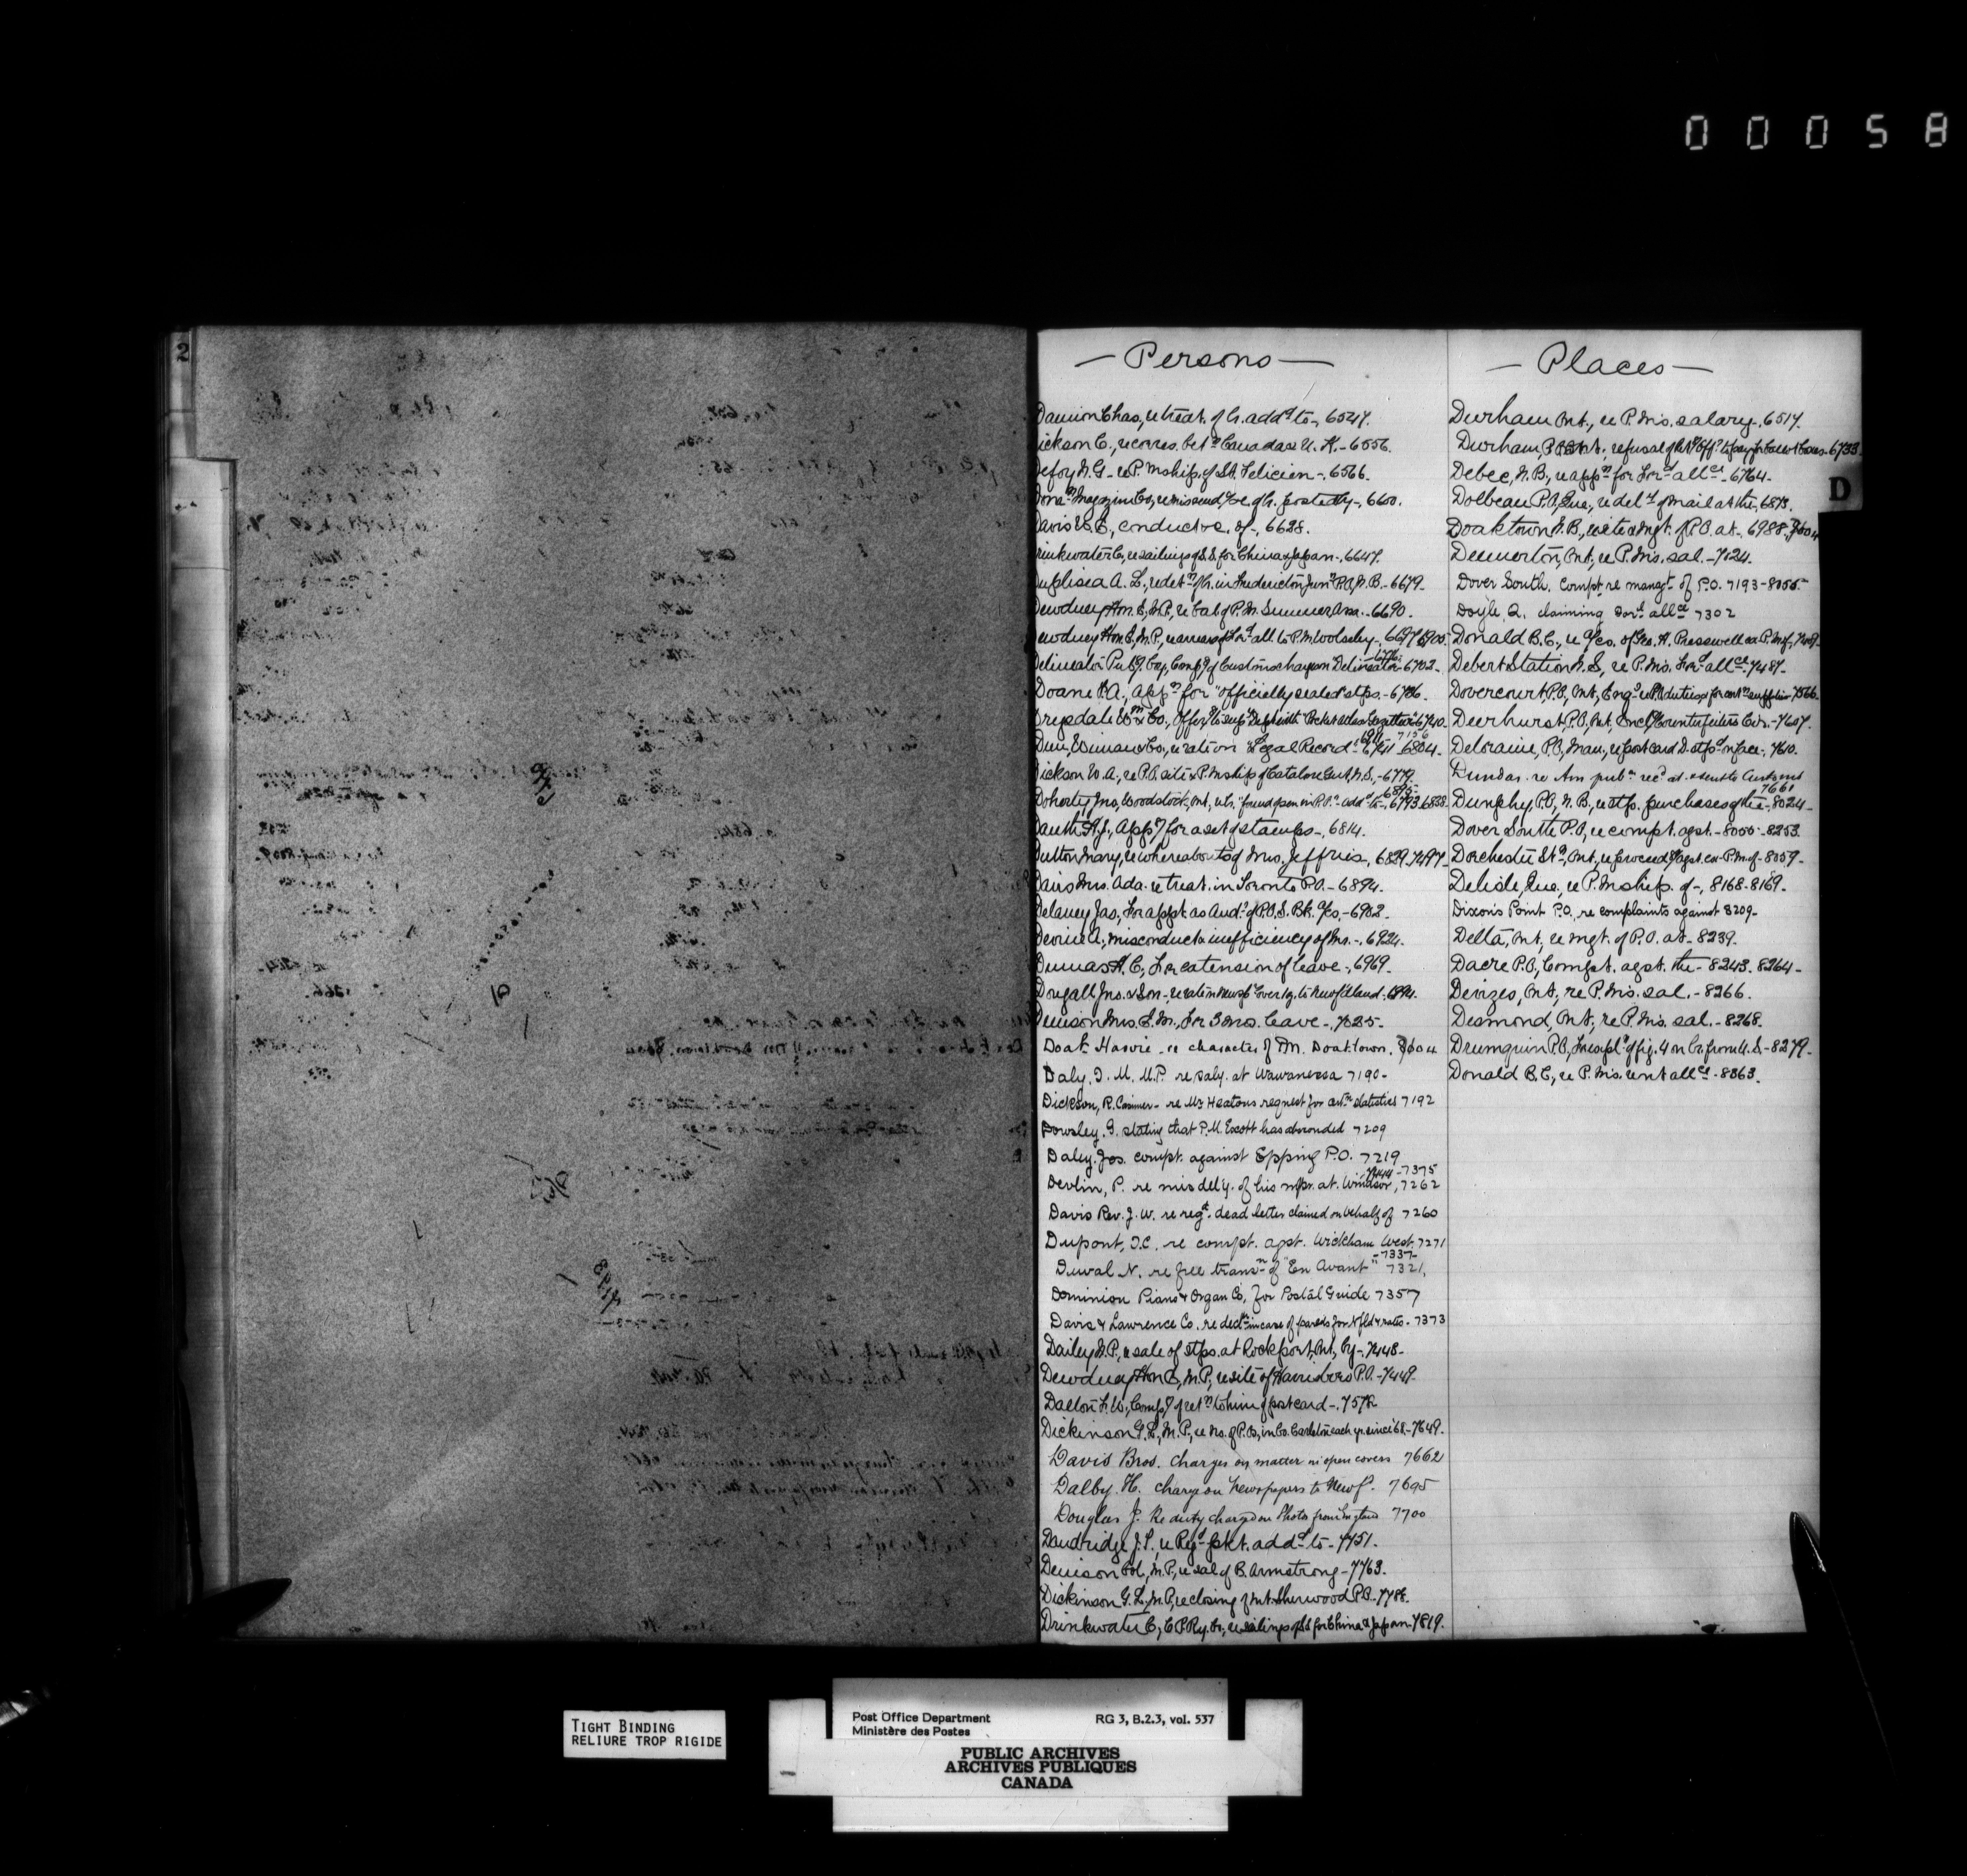 00058
2
— Persons —
Damion Chas, re treat. of lr. add^d to-, 6527.
Dickson C., re corres. bet^n Canada & U. K. - 6556.
Defoy N. G - re P. Mship. of St. Felicien -, 6566.
Magazine Co, re missend^g &c. of lr. posted by -, 6600.
Davis W. E., conduct &c. of -, 6628.
Drinkwater C., re sailings of S.S. for China & Japan -, 6647.
Duplisea A. L., re det^n of lr. in Fredericton Junc^n P.O., N.B. - 6679.
Dewdney Hon. E., M.P., re sal. of P.M. Summer - 6690.
Dewdney Hon. E., M.P., re arrears of for^d all. to P.M. Woolseley -, 6697
Delineator Pub^g. Coy, Comp^t of Customs charges on "Delineator" 6702 -
Doane F. A., App^n for "officially sealed" stps. - 6706 -
Drysdale Wm & Co., offer^g to sup^y Gazetteer 6740.
Dun, Wiman & Co., re rate on "Legal Record" - 6741 6804 -
Dickson W. A., re P.O. site & P. Mship of Catalone Gut, N.S., - 6779.
Doherty Jno, Woodstock, Ont., re lr. "found open in P.O." - add^d to -, 6793, 6838
Dauth H. J., App^n for a set of stamps -, 6814.
Dutton Mary, re whereabouts of Mrs. Jeffries, 6829, 7297 -
Davis Mrs. Ada. re treat. in Toronto P.O. - 6894.
Delaney Jas, for appt. as Aud^r of P.O. S. Bk. a/cs. - 6902.
Devine A., misconduct & inefficiency of Mr. -, 6924.
Dumas H. C., for extension of leave -, 6969.
Dougall Jno. & Son - re rate on newsp^r over 1 lb. to Newfdland -
Denison Mrs. E. M., for 3 mos. leave -, 7025 -
Doak Harvie - re character of P.M. Doaktown.
Daly. T. M. M.P. re saly. at Wawanesa 7190 -
Dickson, R. Casimer - re Mr Heatons request for cert^n statistics 7192
Dowsley. G. stating that P.M. Escott has absconded 7209
Daley. Jos. compt. against Epping P.O. 7219
7244 - 7375
Devlin, P. re misdel'y. of his nwpr. at. Windsor, 7262
Davis Rev. J. W. re reg^d. dead letter claimed on behalf of 7260
Dupont, J.C. re compt. agst. Wickham West. 7271
- 7337 -
Duval N. re free trans^n of "En Avant" 7321,
Dominion Piano & Organ Co, for Postal Guide 7357
Davis & Lawrence Co. re decl^n in case of parcels for Nfld & rates - 7373
Dailey N. P., re sale of stps. at Rockport, Ont., by - 7448 -
Dewdney Hon E, M.P., re site of P.O. - 7449.
Dalton F. W., Comp^g of ret^n to him of postcard -, 7572
Dickinson G. L., M.P., re No. of P.Os, in Co. Carleton each yr. since '68 - 7649.
Davis Bros. Charges on matter in open covers 7662
Dalby. H. charge on Newspapers to Newf^d. 7695
Douglas J. Re duty charged on Photos from England 7700
Dandridge J. P., re Reg^d pkt. add^d to - 7751.
Denison Col, M.P., re sal of B. Armstrong - 7763.
Dickinson G. L., M.P., re closing of Mt. Sherwood P.O. - 7788.
Drinkwater C., C.P.Ry. Co., re sailings of SS for China & Japan. 7819.
— Places —
Durham Ont., re P. Mrs. salary -. 6517.
Durham, P.O. Ont., refusal of to pay for 6733
Debec, N. B., re app^n for for^d all^ce - 6764 -
Dolbeau P.O, Que., re del^y of mail at the -, 6873.
Doaktown N. B., re site & mgt. of P.O. at -, 6988,
Deemerton, Ont., re P. Mrs. sal. - 7124.
Dover South. Compt. re mangt. of P.O. 7193 - 8055
Doyle Q. claiming for^d all^ce 7302
Donald B. C., re a/cs. of Geo. H. Presswell ex P.M. of,
Debert Station N. S., re P. Mrs. For^d all^ce. 7487 -
Dovercourt P.O., Ont., Enq^g re P.O. duties & for cert^n supplies - 7566
Deerhurst P.O, Ont, Encl^g Counterfeiters Circs. - 7607.
Deloraine, P.O, Man., re post card D. stp^d on face - 7610.
Dundas. re Am pub^n rec^d at. & sent to Customs
7661
Dunphy P.O, N. B., re stp. purchases of the - 8024 -
Dover South P.O, re compt. agst. - 8055 - 8253
Dorchester St^n, Ont., re proceed^gs agst. ex-P.M. of - 8059 -
Delisle, Que., re P. Mship. of -, 8168 - 8169.
Dixons Point P.O., re complaints against 8209 -
Delta, Ont., re mgt. of P.O. at - 8239.
Dacre P.O., Compt. agst. the - 8243. 8264 -
Devizes, Ont., re P. Mrs. sal. - 8266.
Desmond, Ont., re P. Mrs. sal. - 8268.
Drumquin P.O, of fig. 4 on lr. from U. S. - 8279 -
Donald B. C, re P. Mrs. rent all^ce - 8363.
D
TIGHT BINDING
RELIURE TROP RIGIDE
Post Office Department RG 3, B.2.3, vol. 537
Ministère des Postes
PUBLIC ARCHIVES
ARCHIVES PUBLIQUES
CANADA